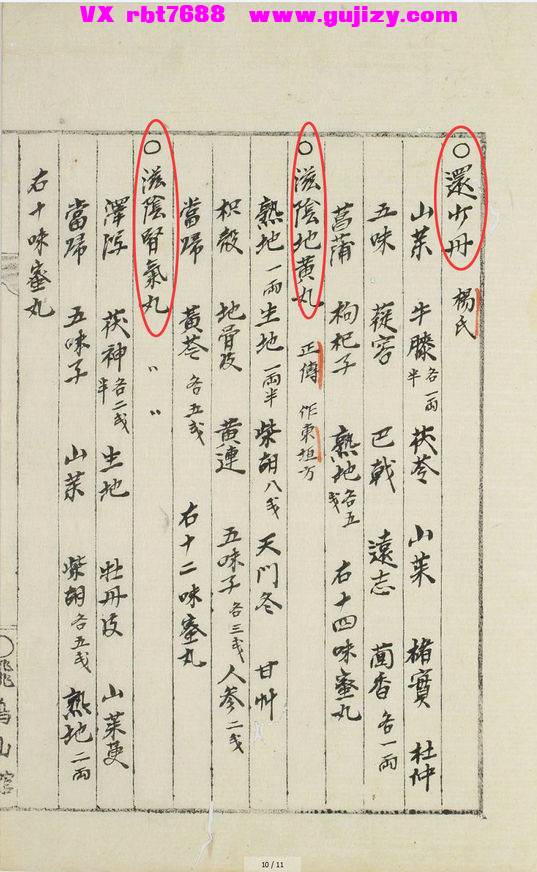 VX rbt7688 www.gujizy.com
○還少丹 楊氏
山茱 牛膝各一兩半 茯苓 山茱 楮實 杜仲
五味 蓯容 巴戟 遠志 茴香各一兩
菖蒲 枸杞子 熟地各五戔 右十四味蜜丸
○滋陰地黃丸 正傳 作東垣方
熟地一兩 生地一兩半 柴胡八戔 天門冬 甘艸
枳殼 地骨皮 黃連 五味子各三戔 人參二戔
當歸 黃芩各五戔 右十二味蜜丸
○滋陰腎氣丸 〃 〃
澤瀉 茯神各二戔半 生地 牡丹皮 山茱萸
當歸 五味子 山茱 柴胡各五戔 熟地二兩
右十味蜜丸
10 / 11